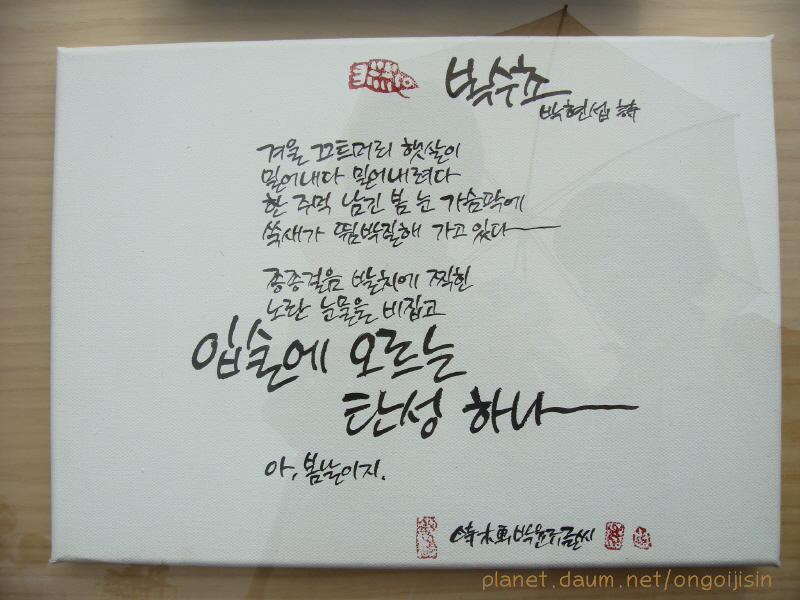 박수초
박현섭 詩
겨울 끄트머리 햇살이
밀어내다 밀어내려다
한 주먹 남긴 봄 눈 가슴팍에
쑥새가 뜀박질해 가고 있다
종종걸음 발치에 찍힌
노란 눈물을 비집고
입술에 오르는
탄성 하나
아, 봄날이지.
박윤규글씨
planet.daum.net/ongoijisin